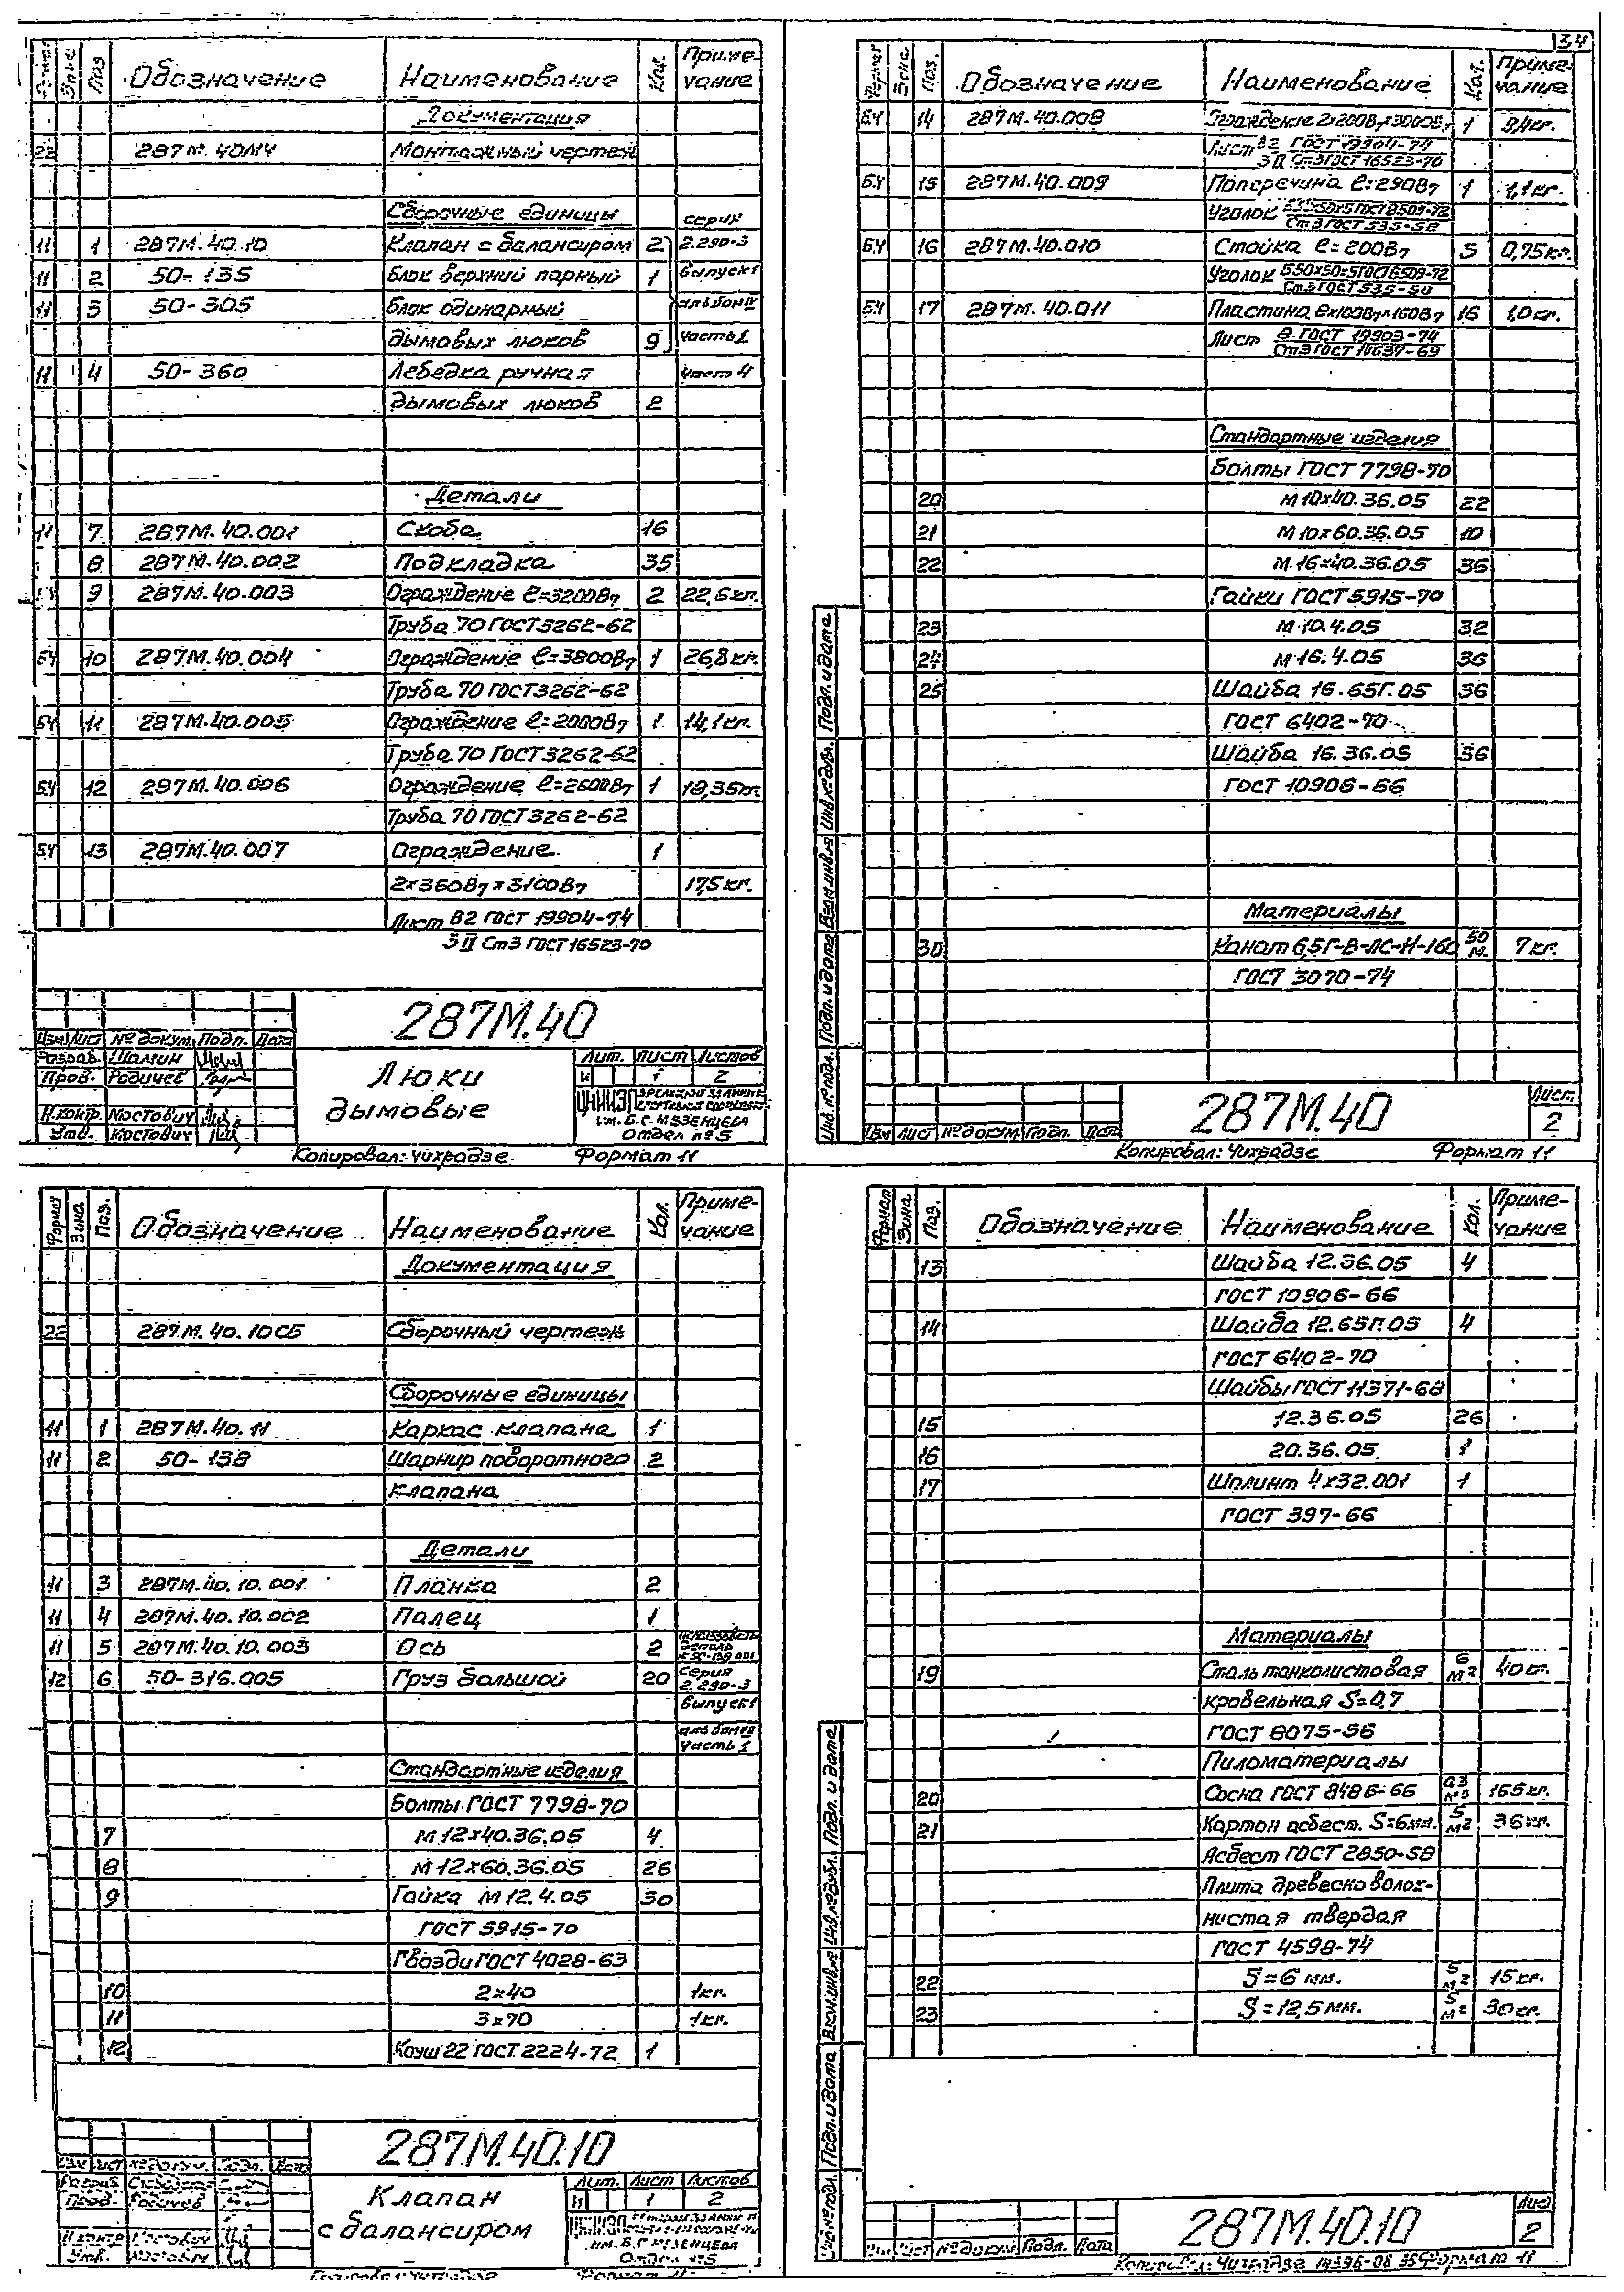 Поз Обозначение Наименование Кол. Приме-
чание
Документация
22 287М.40МЧ Монтажный чертеж
Сборочные единицы серия
11 1 287М.40.10 Клапан с балансиром 2 2.290-3
11 2 50-135 Блок верхний парный 1 выпуск 1
11 3 50-305 Блок одинарный альбом IV
дымовых люков 9 часть 1
11 4 50-360 Лебедка ручная часть 4
дымовых люков 2
Детали
11 7 287М.40.001 Скоба 16
8 287М.40.002 Подкладка 35
9 287М.40.003 Ограждение ℓ=3200В7 2 22,6кг.
Труба 70 ГОСТ3262-62
БЧ 10 287М.40.004 Ограждение ℓ=3800В7 1 26,8кг.
Труба 70 ГОСТ3262-62
БЧ 11 287М.40.005 Ограждение ℓ=2000В7 1 14,1кг.
Труба 70 ГОСТ3262-62
БЧ 12 287М.40.006 Ограждение ℓ=2600В7 1 18,35кг
Труба 70 ГОСТ3262-62
БЧ 13 287М.40.007 Ограждение 1
2×360В7×3100В7 17,5кг.
Лист В2 ГОСТ 19904-74
3 II Ст3 ГОСТ 16523-70
287М.40
Изм Лист № докум. Подп. Дата
Разраб. Шамин
Пров. Родичев
Н.контр. Костович
Утв. Костович
Люки
дымовые
Лит. Лист Листов
И 1 2
ЦНИИЭП зрелищных зданий и
спортивных сооружений
им. Б.С. Мезенцева
Отдел №5
Копировал: Чихрадзе Формат 11
34
Формат Зона Поз. Обозначение Наименование Кол. Приме-
чание
БЧ 14 287М.40.008 Ограждение 2×200В7×3000В7 1 9,4кг.
Лист В2 ГОСТ 19904-74
3 II Ст3 ГОСТ 16523-70
БЧ 15 287М.40.009 Поперечина ℓ=290В7 1 1,1кг.
Уголок ГОСТ8509-72
Ст3 ГОСТ 535-58
БЧ 16 287М.40.010 Стойка ℓ=200В7 5 0,75кг.
Уголок Б50×50×5ГОСТ8509-72
Ст3 ГОСТ 535-58
БЧ 17 287М.40.011 Пластина 8×100В7×160В7 16 1,0кг.
Лист 8 ГОСТ 19903-74
Ст3 ГОСТ 14637-69
Стандартные изделия
Болты ГОСТ 7798-70
20 М10×40.36.05 22
21 М10×60.36.05 10
22 М16×40.36.05 36
Гайки ГОСТ5915-70
23 М10.4.05 32
24 М16.4.05 36
25 Шайба 16.65Г.05 36
ГОСТ 6402-70
Шайба 16.36.05 36
ГОСТ 10906-66
Материалы
30 Канат 6,5Г-В-ЛС-Н-160 50
м. 7кг.
ГОСТ 3070-74
Инв. № подл. Подп. и дата Взам.инв.№ Инв.№ дубл. Подп. и дата
Изм Лист № докум. Подп. Дата
287М.40
Лист.
2
Копировал: Чихрадзе Формат 11
Формат Зона Поз. Обозначение Наименование Кол. Приме-
чание
Документация
22 287М.40.10СБ Сборочный чертеж
Сборочные единицы
11 1 287М.40.11 Каркас клапана 1
11 2 50-138 Шарнир поворотного 2
клапана
Детали
11 3 287М.40.10.001 Планка 2
11 4 287М.40.10.002 Палец 1
11 5 287М.40.10.003 Ось 2
12 6 50-316.005 Груз большой 20 Серия
2.290-3
выпуск1
часть 1
Стандартные изделия
Болты ГОСТ 7798-70
7 М12×40.36.05 4
8 М12×60.36.05 26
9 Гайка М12.4.05 30
ГОСТ 5915-70
Гвозди ГОСТ 4028-63
10 2×40 1кг.
11 3×70 1кг.
12 Коуш 22 ГОСТ 2224-72 1
287М.40.10
Изм Лист № докум. Подп. Дата
Разраб.
Пров. Родичев
Н.контр Костович
Утв. Костович
Клапан
с балансиром
Лит. Лист Листов
И 1 2
ЦНИИЭП
им. Б.С. Мезенцева
Отдел №5
Формат 11
Формат Зона Поз. Обозначение Наименование Кол. Приме-
чание
13 Шайба 12.36.05 4
ГОСТ 10906-66
14 Шайба 12.65Г.05 4
ГОСТ 6402-70
Шайбы ГОСТ 11371-68
15 12.36.05 26
16 20.36.05 1
17 Шплинт 4×32.001 1
ГОСТ 397-66
Материалы
19 Сталь тонколистовая 6
м² 40кг.
кровельная S=0,7
ГОСТ 8075-56
Пиломатериалы
20 Сосна ГОСТ 8486-66 0,3
м³ 165кг.
21 Картон асбест. S=6мм. 5
м² 36кг.
Асбест ГОСТ 2850-58
Плита древесноволок-
нистая твердая
ГОСТ 4598-74
22 S=6 мм. 5
м² 15кг.
23 S=12,5мм. 5
м² 30кг.
Инв № подл. Подп. и дата Взам.инв.№ Инв.№ дубл. Подп. и дата
Изм Лист № докум Подп. Дата
287М.40.10
Лист
2
Копировал: Чихрадзе 14396-08 35 Формат 11